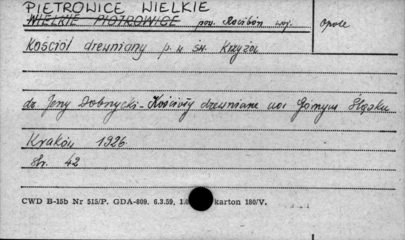 PIETROWICE WIELKIE
WIELKIE PIOTROWICE pow. Racibórz woj. Opole
Kościół drewniany p. w św. Krzyża
dr. Jerzy Dobrzycki - Kościoły drewniane na Górnym Śląsku
Kraków 1926
str. 42
CWD B-15b Nr 515/P. GDA-809. 6.3.59, karton 180/V.